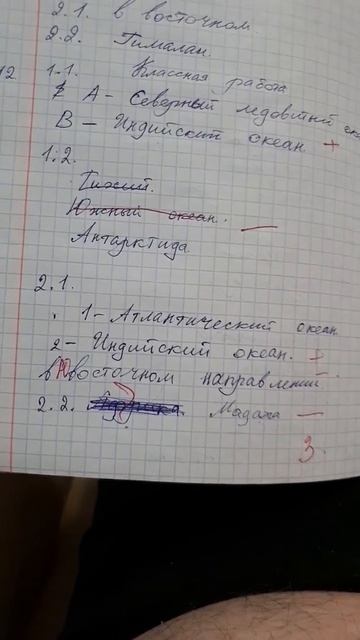 2.1. в восточном
2.2. Гималаи.
12 1.1. Классная работа
А - Северный ледовитый ок
В - Индийский океан +
1.2.
Тихий.
Южный океан. —
Антарктида
2.1.
1 - Атлантический океан
2 - Индийский океан. +
в Ювосточном направлении —
2.2. Мадага —
3.